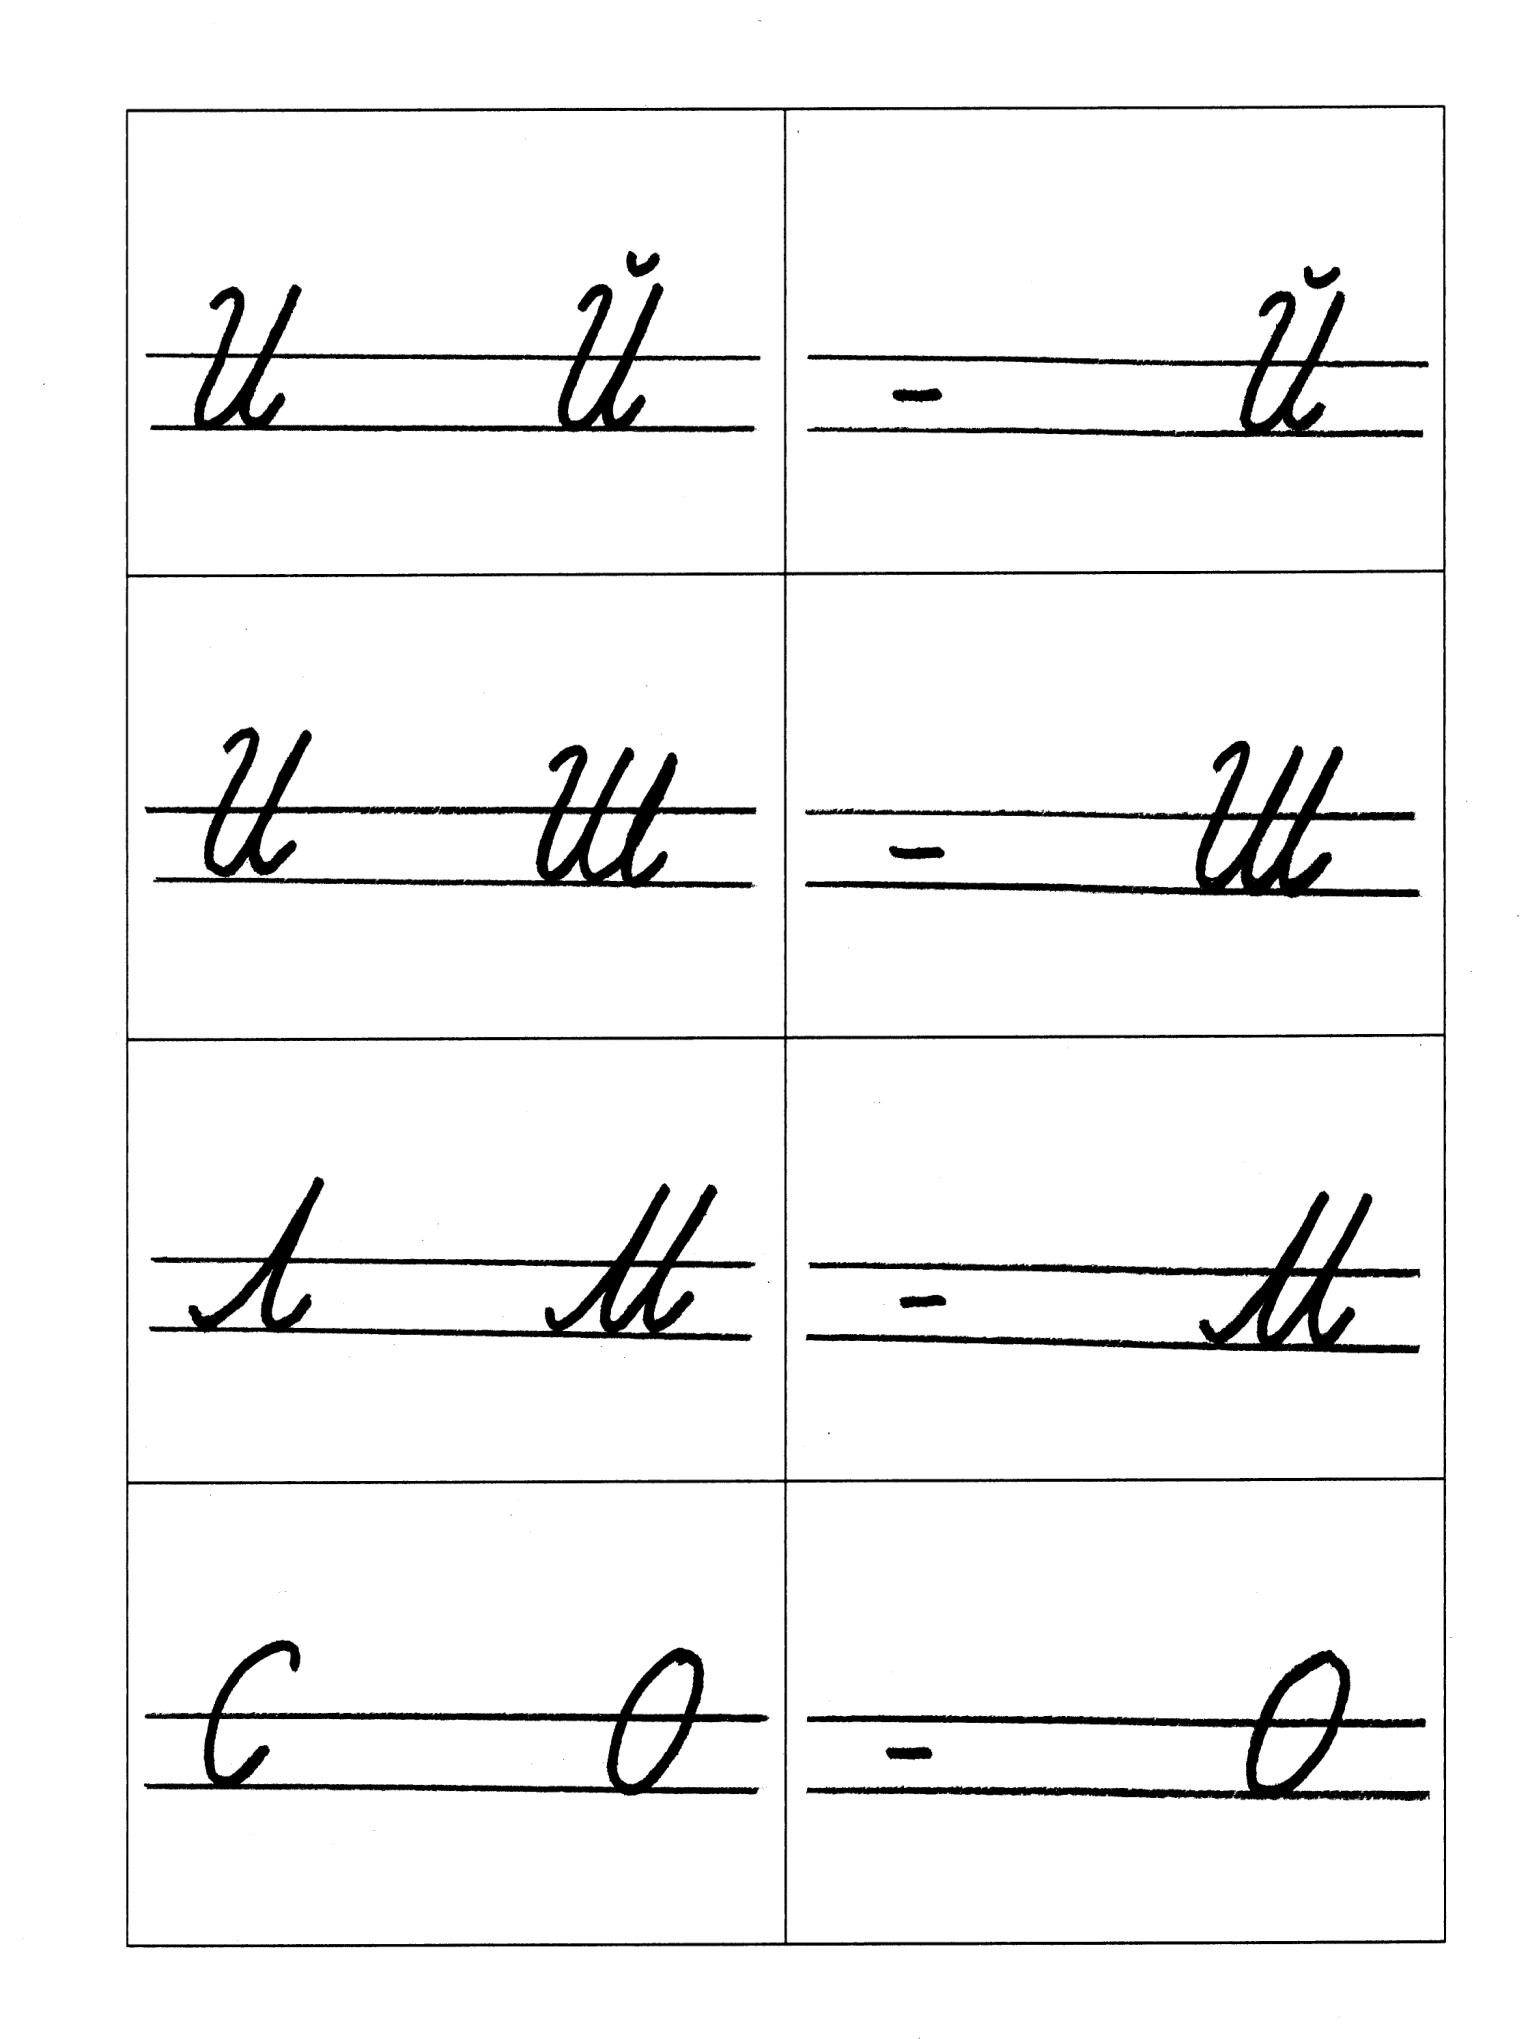 И Й
- Й
И Ш
- Ш
Л М
- М
С О
- О